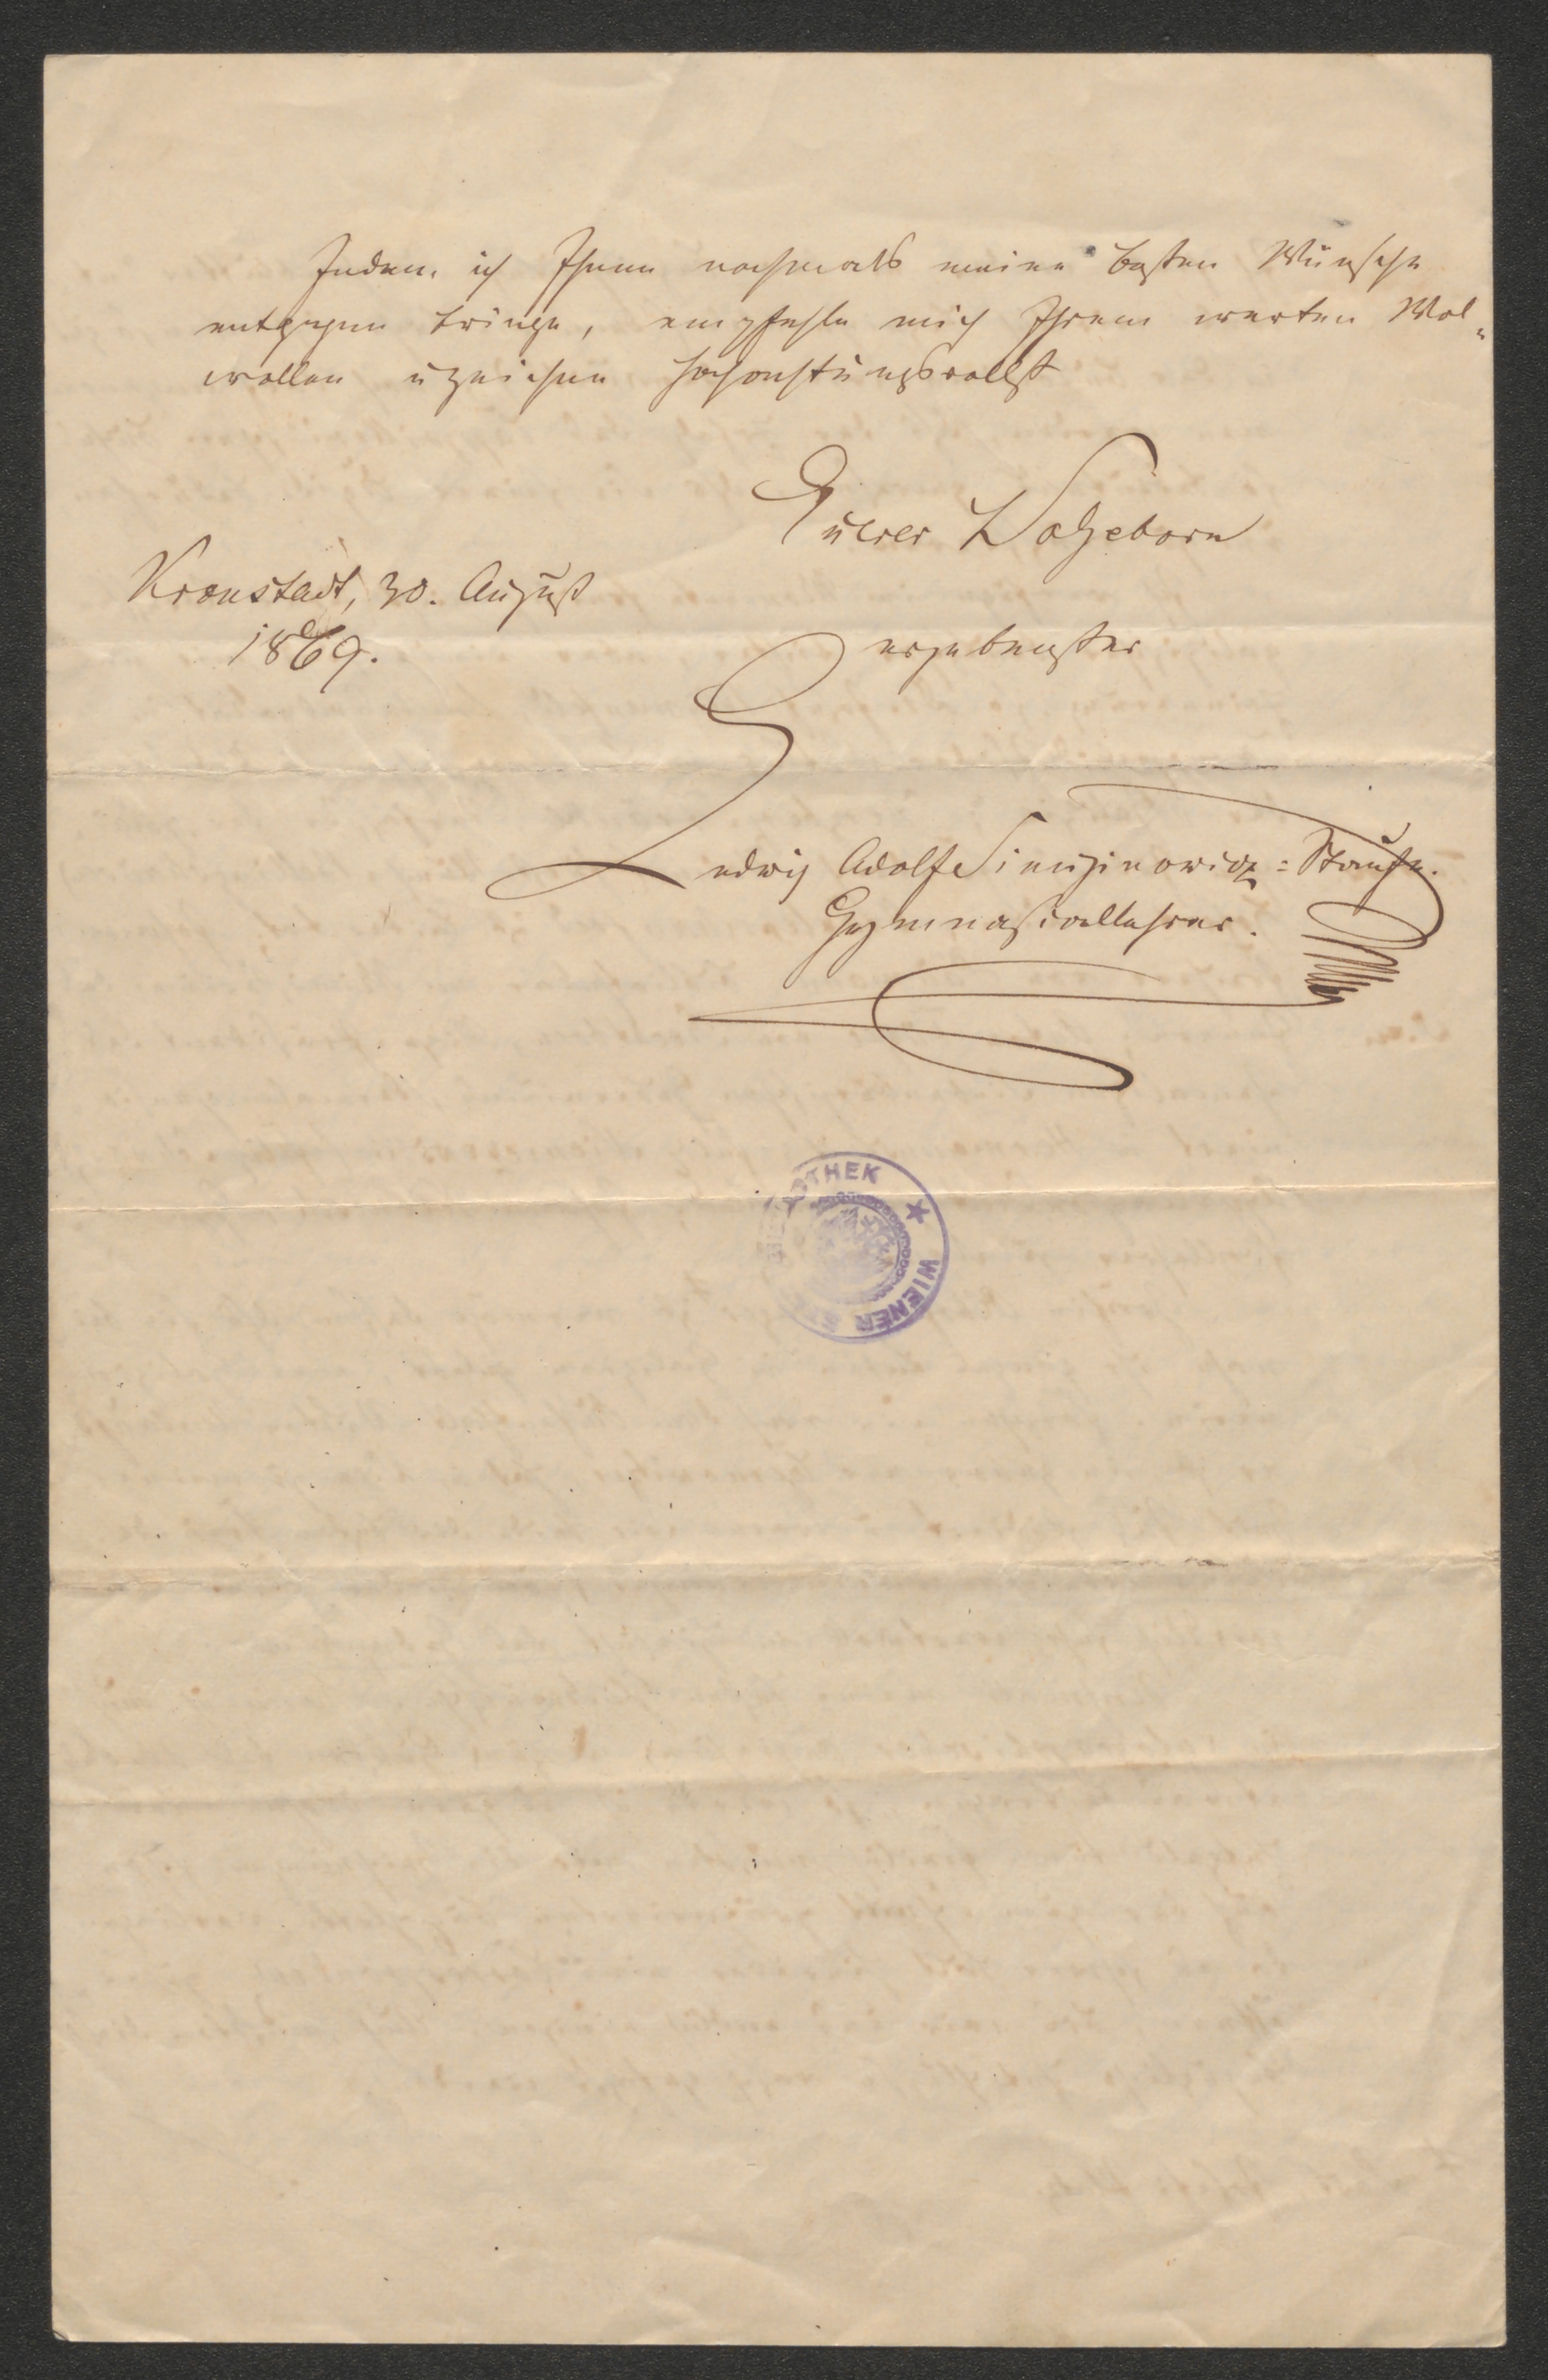 Indem ich Ihnen nochmals meine besten Wünsche
entgegen bringe, empfehle mich Ihrem werten Wol-
wollen u zeichne hochachtungsvollst
Eurer Wolgeborn
Kronstadt, 30. August
1869.
ergebenster
Ludwig Adolf Simiginowicz=Staufe.
Gymnasiallehrer.
BIBLIOTHEK ★ WIENER